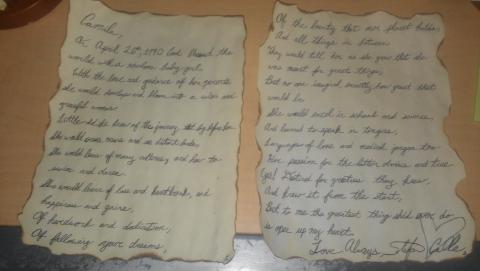 Camila,
On April 20th, 1990 God blessed the
world with a newborn baby girl,
With the love and guidance of her parents
she would develop and bloom into a wise and
graceful woman.
Little did she know of the journey that lay before her
She would cross rivers and
She would learn of many cultures, and how to
swim and dance.
She would learn of lies and heartbreak, and
happiness and grief,
Of hardwork and dedication,
Of following your dreams,
Of the beauty that our planet holds,
And all things in between.
They would tell her as she grew that she
was meant for great things,
But no one imagined exactly how great that
would be.
She would excel in school and science,
And learned to speak in tongues,
Languages of love and medical jargon too
Her passion for the
Yes! Destined for greatness they knew,
And knew it from the start,
But to me the greatest thing she'd ever do,
is open up my heart.
Love Always,